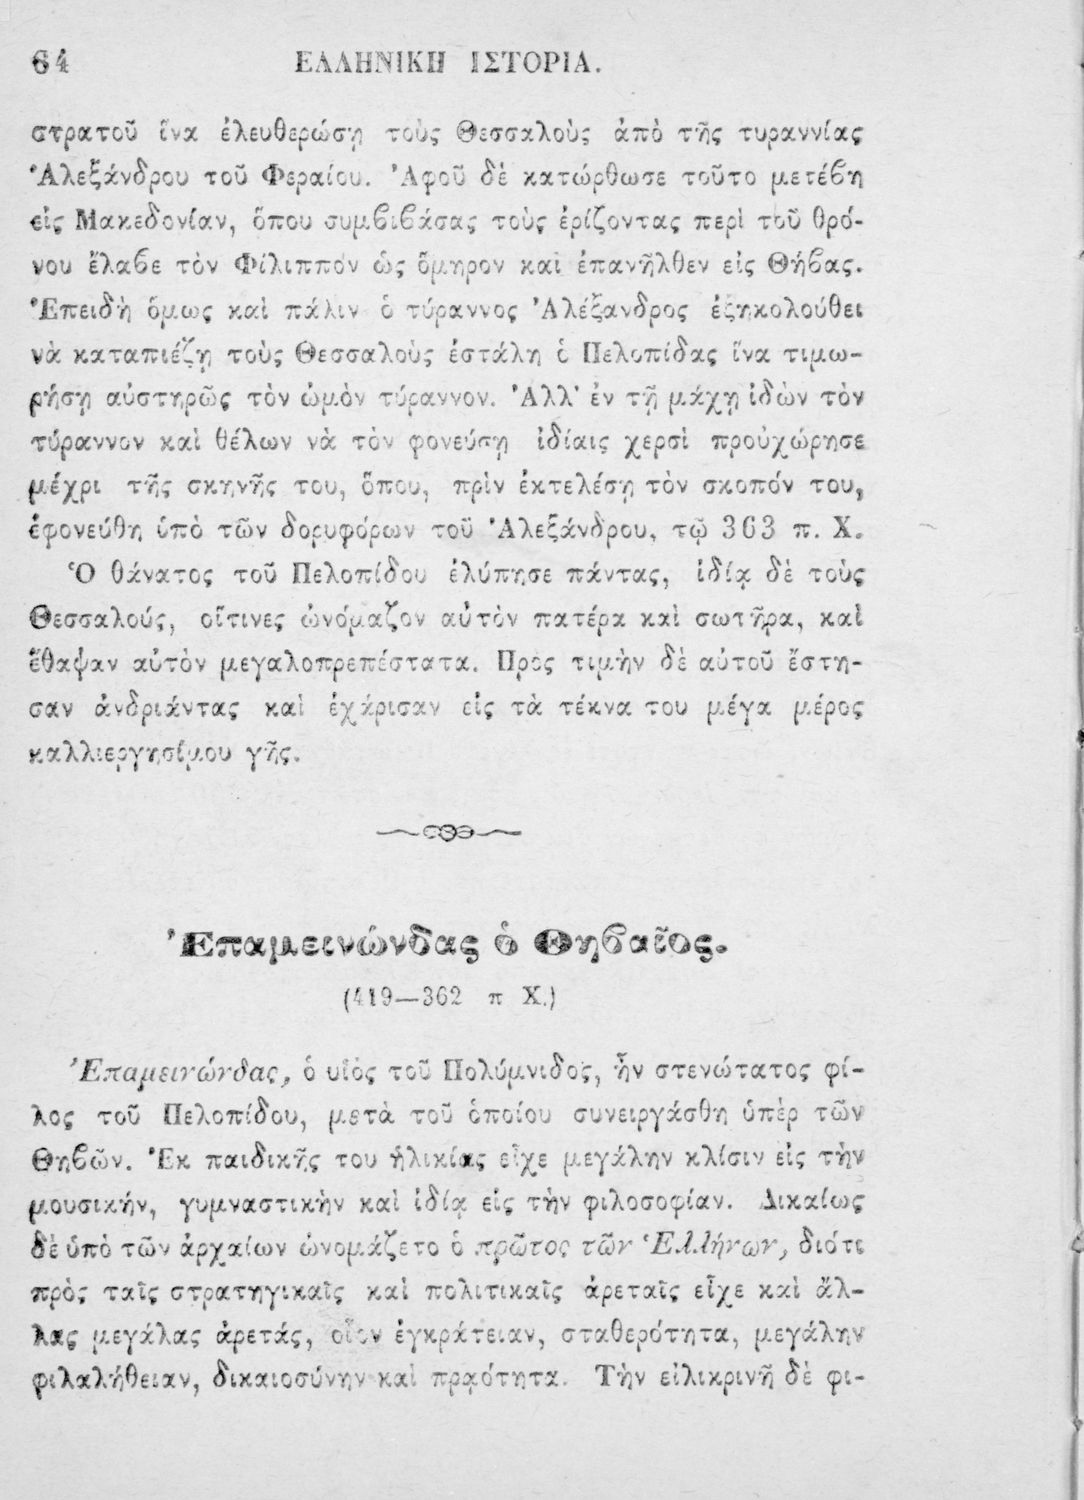 64 ΕΛΛΗΝΙΚΗ ΙΣΤΟΡΙΑ.
στρατοῦ ἵνα ἐλευθερώσῃ τοὺς Θεσσαλοὺς ἀπὸ τῆς τυραννίας
Ἀλεξάνδρου τοῦ Φεραίου. Ἀφοῦ δὲ κατώρθωσε τοῦτο μετέβη
εἰς Μακεδονίαν, ὅπου συμβιβάσας τοὺς ἐρίζοντας περὶ τοῦ θρό-
νου ἔλαβε τὸν Φίλιππον ὡς ὅμηρον καὶ ἐπανῆλθεν εἰς Θήβας.
Ἐπειδὴ ὅμως καὶ πάλιν ὁ τύραννος Ἀλέξανδρος ἐξηκολούθει
νὰ καταπιέζῃ τοὺς Θεσσαλοὺς ἐστάλη ὁ Πελοπίδας ἵνα τιμω-
ρήσῃ αὐστηρῶς τὸν ὠμὸν τύραννον. Ἀλλ' ἐν τῇ μάχῃ ἰδὼν τὸν
τύραννον καὶ θέλων νὰ τὸν φονεύσῃ ἰδίαις χερσὶ προὐχώρησε
μέχρι τῆς σκηνῆς του, ὅπου, πρὶν ἐκτελέσῃ τὸν σκοπόν του,
ἐφονεύθη ὑπὸ τῶν δορυφόρων τοῦ Ἀλεξάνδρου, τῷ 363 π. Χ.
Ὁ θάνατος τοῦ Πελοπίδου ἐλύπησε πάντας, ἰδίᾳ δὲ τοὺς
Θεσσαλούς, οἵτινες ὠνόμαζον αὐτὸν πατέρα καὶ σωτῆρα, καὶ
ἔθαψαν αὐτὸν μεγαλοπρεπέστατα. Πρὸς τιμὴν δὲ αὐτοῦ ἔστη-
σαν ἀνδριάντας καὶ ἐχάρισαν εἰς τὰ τέκνα του μέγα μέρος
καλλιεργησίμου γῆς.
Ἐπαμεινώνδας ὁ Θηβαῖος.
(419—362 π Χ.)
Ἐπαμεινώνδας, ὁ υἱὸς τοῦ Πολύμνιδος, ἦν στενώτατος φί-
λος τοῦ Πελοπίδου, μετὰ τοῦ ὁποίου συνειργάσθη ὑπὲρ τῶν
Θηβῶν. Ἐκ παιδικῆς του ἡλικίας εἶχε μεγάλην κλίσιν εἰς τὴν
μουσικήν, γυμναστικὴν καὶ ἰδίᾳ εἰς τὴν φιλοσοφίαν. Δικαίως
δὲ ὑπὸ τῶν ἀρχαίων ὠνομάζετο ὁ πρῶτος τῶν Ἑλλήνων, διότι
πρὸς ταῖς στρατηγικαῖς καὶ πολιτικαῖς ἀρεταῖς εἶχε καὶ ἄλ-
λας μεγάλας ἀρετάς, οἷον ἐγκράτειαν, σταθερότητα, μεγάλην
φιλαλήθειαν, δικαιοσύνην καὶ πρᾳότητα. Τὴν εἰλικρινῆ δὲ φι-